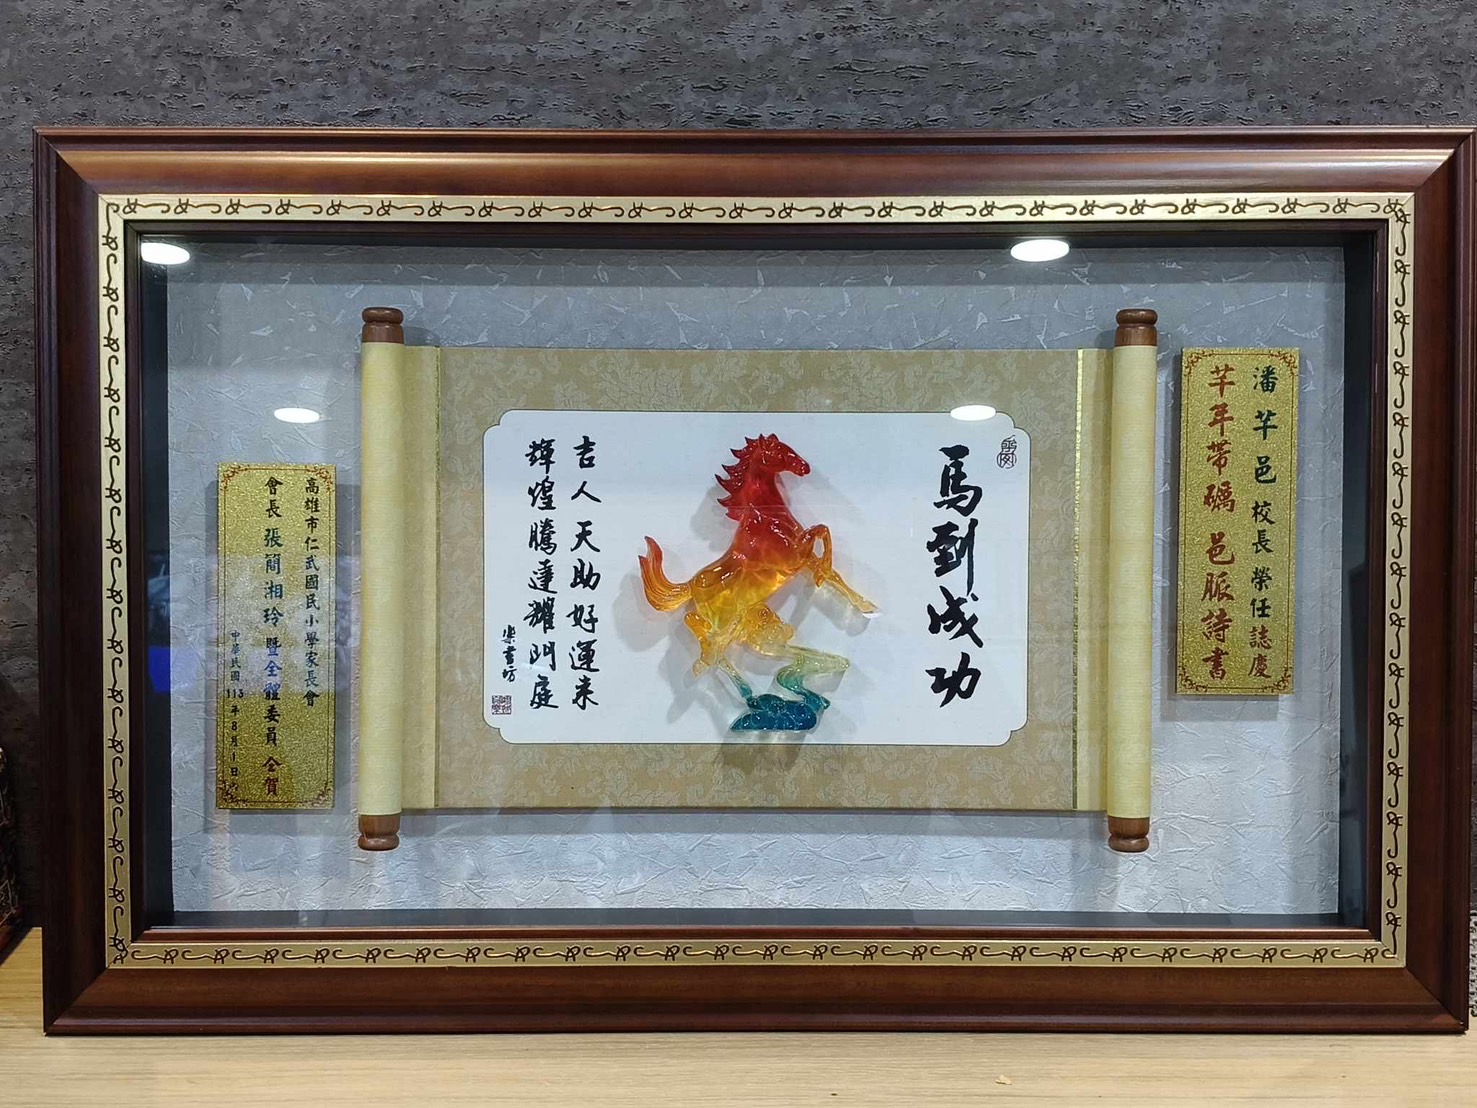 潘芊邑校長 榮任誌慶
芊年帶礪 邑脈詩書
馬到成功
吉人天助好運来
輝煌騰達耀門庭
樂書坊
高雄市仁武國民小學家長會
會長 張簡湘玲 暨全體委員 仝賀
中華民國113年8月1日